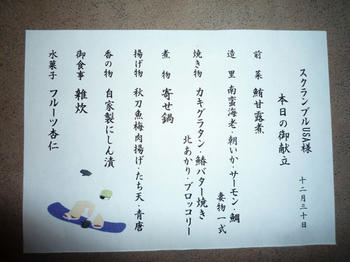 スクランブルUSA様
十二月三十日
本日の御献立
前菜 鮪甘露煮
造里 南蛮海老・朝いか・サーモン・鯛
妻物一式
焼き物 カキグラタン・鰆バター焼き
北あかり・ブロッコリー
煮物 寄せ鍋
揚げ物 秋刀魚梅肉揚げ・たち天・青唐
香の物 自家製にしん漬
御食事 雑炊
水菓子 フルーツ杏仁